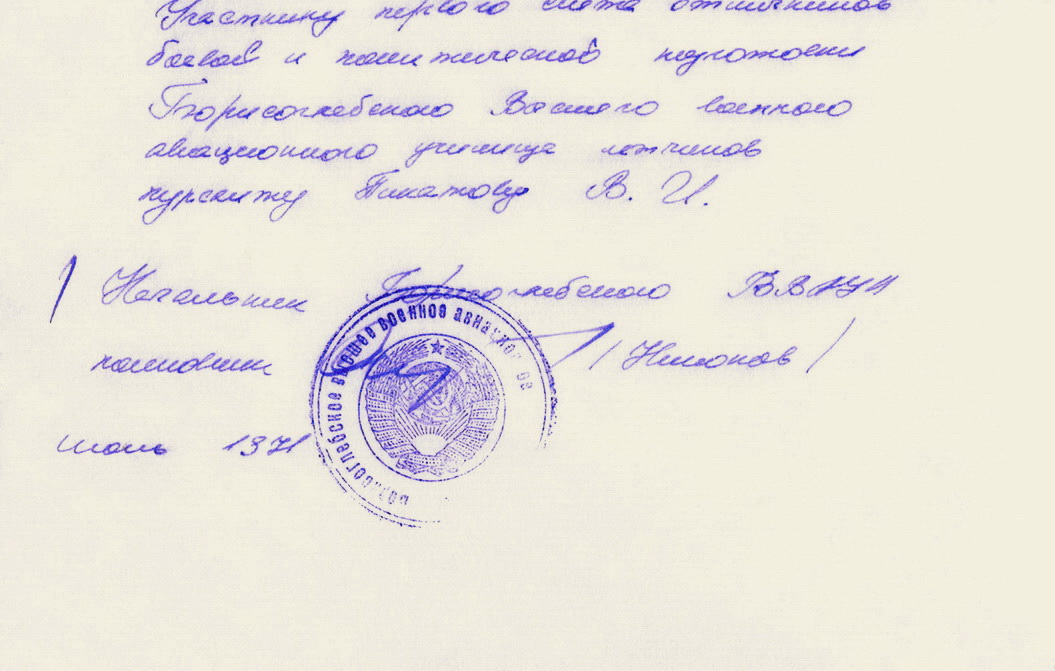 Участнику первого слёта отличников
боевой и политической подготовки
Борисоглебского Высшего военного
авиационного училища летчиков
курсанту Пикатову В. И.
Начальник Борисоглебского ВВАУЛ
полковник /Никонов/
июль 1971
Борисоглебское высшее военное авиацион